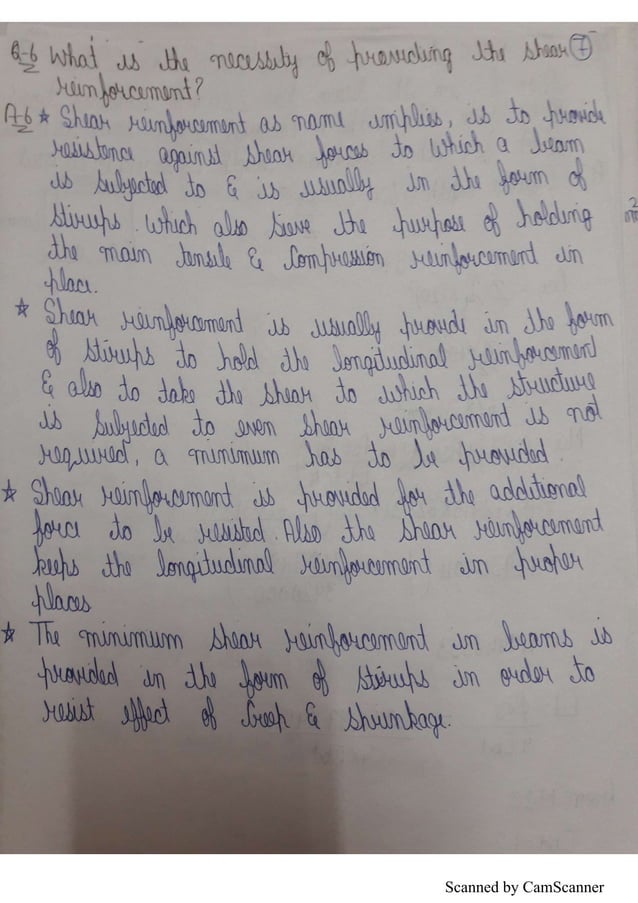 Q-6 What is the necessity of providing the shear 7
reinforcement?
A-6 * Shear reinforcement as name implies, is to provide
resistence against shear forces to which a beam
is subjected to & is usually in the form of
stirups. Which also sieve the purpose of holding
the main tensile & Compression reinforcement in
place.
* Shear reinforcement is usually provide in the form
of stirups to hold the longitudinal reinforcement
& also to take the shear to which the structure
is subjected to even shear reinforcement is not
required, a minimum has to be provided.
* Shear reinforcement is provided for the additional
force to be resisted. Also the shear reinforcement
keeps the longitudinal reinforcement in proper
places
* The minimum shear reinforcement in beams is
provided in the form of stirups in order to
resist effect of Creep & shrunkage.
Scanned by CamScanner